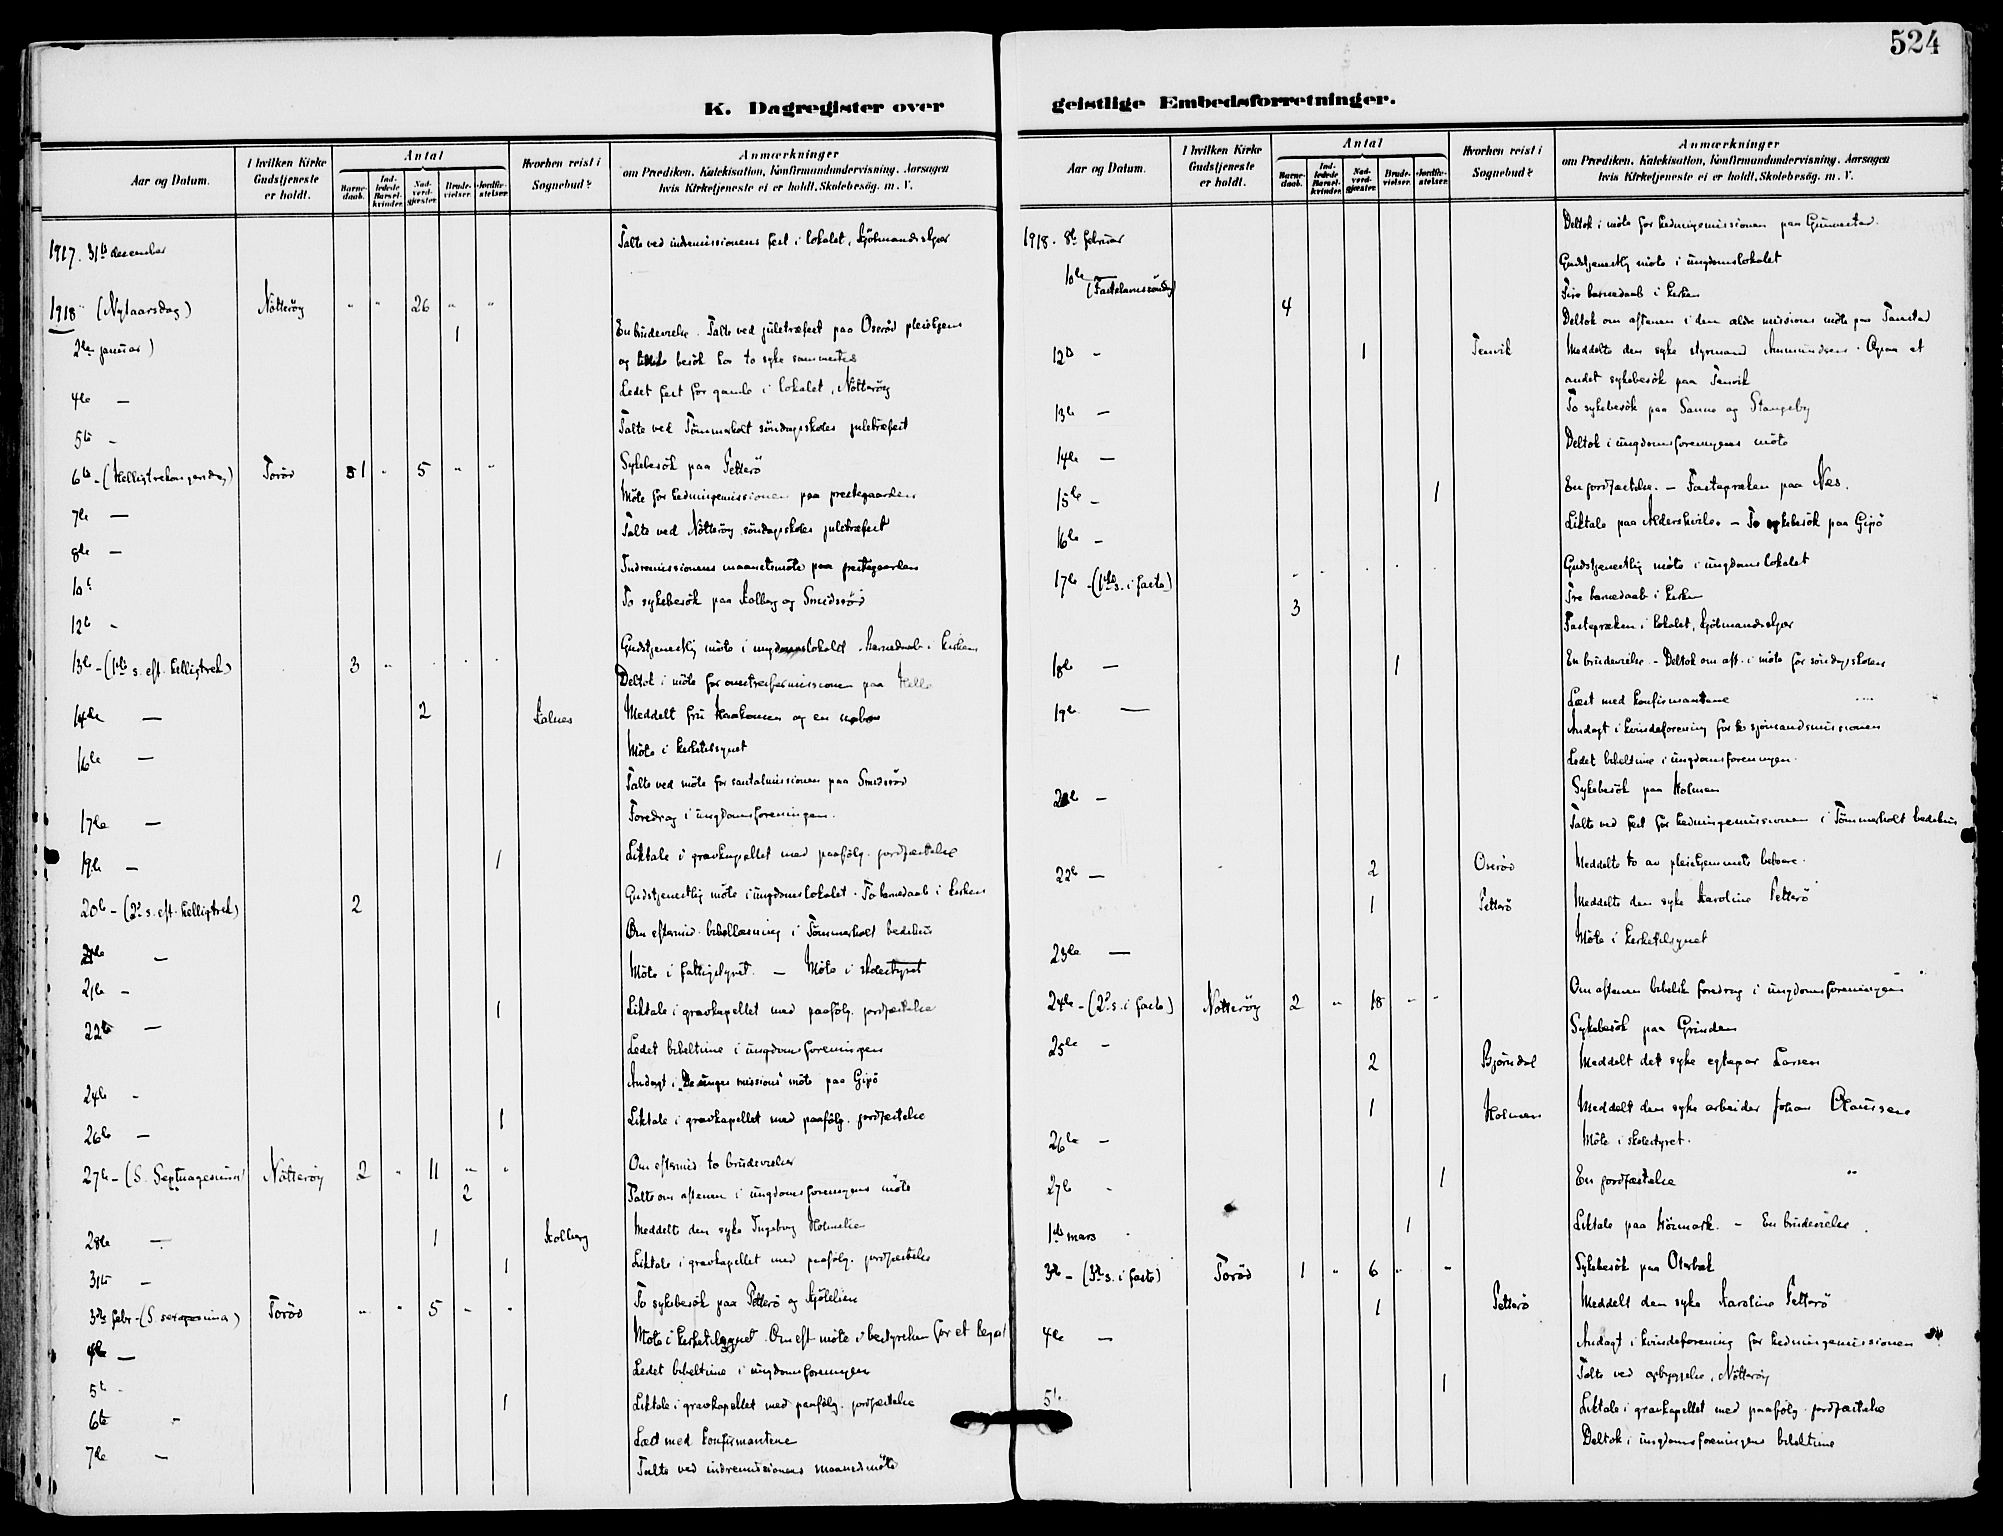 524
K. Dagregister over
Aar og Datum.
I hvilken Kirke Gudstjeneste er holdt.
Antal
Barne-daab.
Ind-ledede Barsel-kvinder.
Nad-verd-gjæster.
Brude-vielser.
Jordfæ-stelser.
Hvorhen reist i Sognebud?
Anmærkninger
om Prædiken, Katekisation, Konfirmandundervisning, Aarsagen
hvis Kirketjeneste ei er holdt, Skolebesøg, m. V.
1917. 31te december Talte ved indremissionens fest i lokalet, Kjölmandskjær
1918 (Nytaarsdag) Nötteröy " " 26 " "
2den januar) 1 En brudevielse. Talte ved juletræfest paa Oseröd pleiehjem
og besök hos to syke sammesteds
4de — Ledet fest for gamle i lokalet, Nötteröy
5te - Talte ved Tömmerholt söndagsskoles juletræfest
6te - (Helligtrekongersdag) Toröd 1 " 5 " " Sykebesök paa Petterö
Möte for hedningemissionen paa prestegaarden
7de — Talte ved Nötteröy söndagsskoles juletræfest
8de —
10de Indremissionens maanedsmöte paa prestegaarden
12te - To sykebesök paa Kolberg og Smidsröd
13de - (1ste s. eft. helligtrek) 3 " Gudstjenestlig möte i ungdomslokalet. barnedaab i kirken
Deltok i möte for paa
14de — 2 Kalnes Meddelt fru Haakonsen og en nabo
16de — Möte i kirketilsynet
Talte ved möte for santalmissionen paa Smidsröd
17de — Foredrag i ungdomsforeningen.
19de — 1 Liktale i gravkapellet med paafölg. jordfæstelse
20de - (2. s. eft. helligtrek) 2 Gudstjenestlig möte i ungdomslokalet. To barnedaab i kirken
Om eftermid. bibellæsning i Tömmerholt bedehus
— Möte i fattigstyret. — Möte i skolestyret
21de -
22de — 1 Liktale i gravkapellet med paafölg. jordfæstelse
Ledet bibeltime i ungdomsforeningen
24de - Andagt i "De unges missions" möte paa Gipö
26de — 1 Liktale i gravkapellet med paafölg. jordfæstelse
27de - (S. Septuagesima) Nötteröy 2 " 11 " " Om eftermid. to brudevielser
2 Talte om aftenen i ungdomsforeningens möte
28de — 1 Kolberg Meddelt den syke Ingeborg
31te — 1 Liktale i gravkapellet med paafölg. jordfæstelse
3die febr - (S. sexagesima) Toröd " " 5 " " To sykebesök paa Petterö og
4de — Möte i kirketilsynet. Om eft möte i bestyrelsen for et legat
5te - Ledet bibeltime i ungdomsforeningen
6te " 1 Liktale i gravkapellet med paafölg. jordfæstelse
Læst med konfirmantene
7de — Talte ved indremissionens maanedsmöte
geistlige Embedsforretninger.
Aar og Datum.
I hvilken Kirke Gudstjeneste er holdt.
Antal
Barne-daab.
Ind-ledede Barsel-kvinder.
Nad-verd-gjæster.
Brude-vielser.
Jordfæ-stelser.
Hvorhen reist i Sognebud?
Anmærkninger
om Prædiken, Katekisation, Konfirmandundervisning, Aarsagen
hvis Kirketjeneste ei er holdt, Skolebesøg, m. V.
1918. 8de februar Deltok i möte for hedningemissionen paa Gunnestad.
10de (Fastelavnssöndag) Gudstjenestlig möte i ungdomslokalet
4 Fire barnedaab i kirken
Deltok om aftenen i den ældre missions möte paa Tanstad
12te - 1 Tenvik Meddelte den syke styrmand Ammundsen. Ogsaa et
andet sykebesök paa Tenvik
13de — To sykebesök paa Sanne og Stangeby
14de — Deltok i ungdomsforeningens möte
15de - 1 En jordfæstelse. — Fastepræken paa Næs.
16de - Liktale paa Aldershvile. — To sykebesök paa Gipö
17de - (1ste s. i faste) Gudstjenestlig möte i ungdomslokalet
3 Tre barnedaab i kirken
Fastepræken i lokalet, Kjölmandskjær
18de — 1 En brudevielse. - Deltok om aft. i möte for söndagsskolen
19de — Læst med konfirmantene
Andagt i kvindeforening for sjömandsmissionen
Ledet bibeltime i ungdomsforeningen.
— Sykebesök paa Holmen
Talte ved fest for hedningemissionen i Tömmerholt bedehus
22de — 2 Oseröd Meddelte to av pleiehjemmets beboere.
1 Petterö Meddelte den syke Karoline Petterö
23de — Möte i kirketilsynet
24de - (2. s. i faste) Nötteröy 2 " 18 " " Om aftenen bibelsk foredrag i ungdomsforeningen
25de - Sykebesök paa Grinden
2 Bjørndal Meddelt det syke egtepar Larsen
1 Holmen Meddelt den syke arbeider Johan Clausen
26de - Möte i skolestyret.
27de - 1 En jordfæstelse
1ste mars 1 Liktale paa — En brudevielse.
3die - (3die s. i faste) Toröd 1 " 6 " " Sykebesök paa Oterbæk
1 Petterö Meddelt den syke Karoline Petterö
4de — Andagt i kvindeforening for hedningemissionen
Talte ved opbyggelse, Nötteröy
5te 1 Liktale i gravkapellet med paafölg. jordfæstelse
Deltok i ungdomsforeningens bibeltime